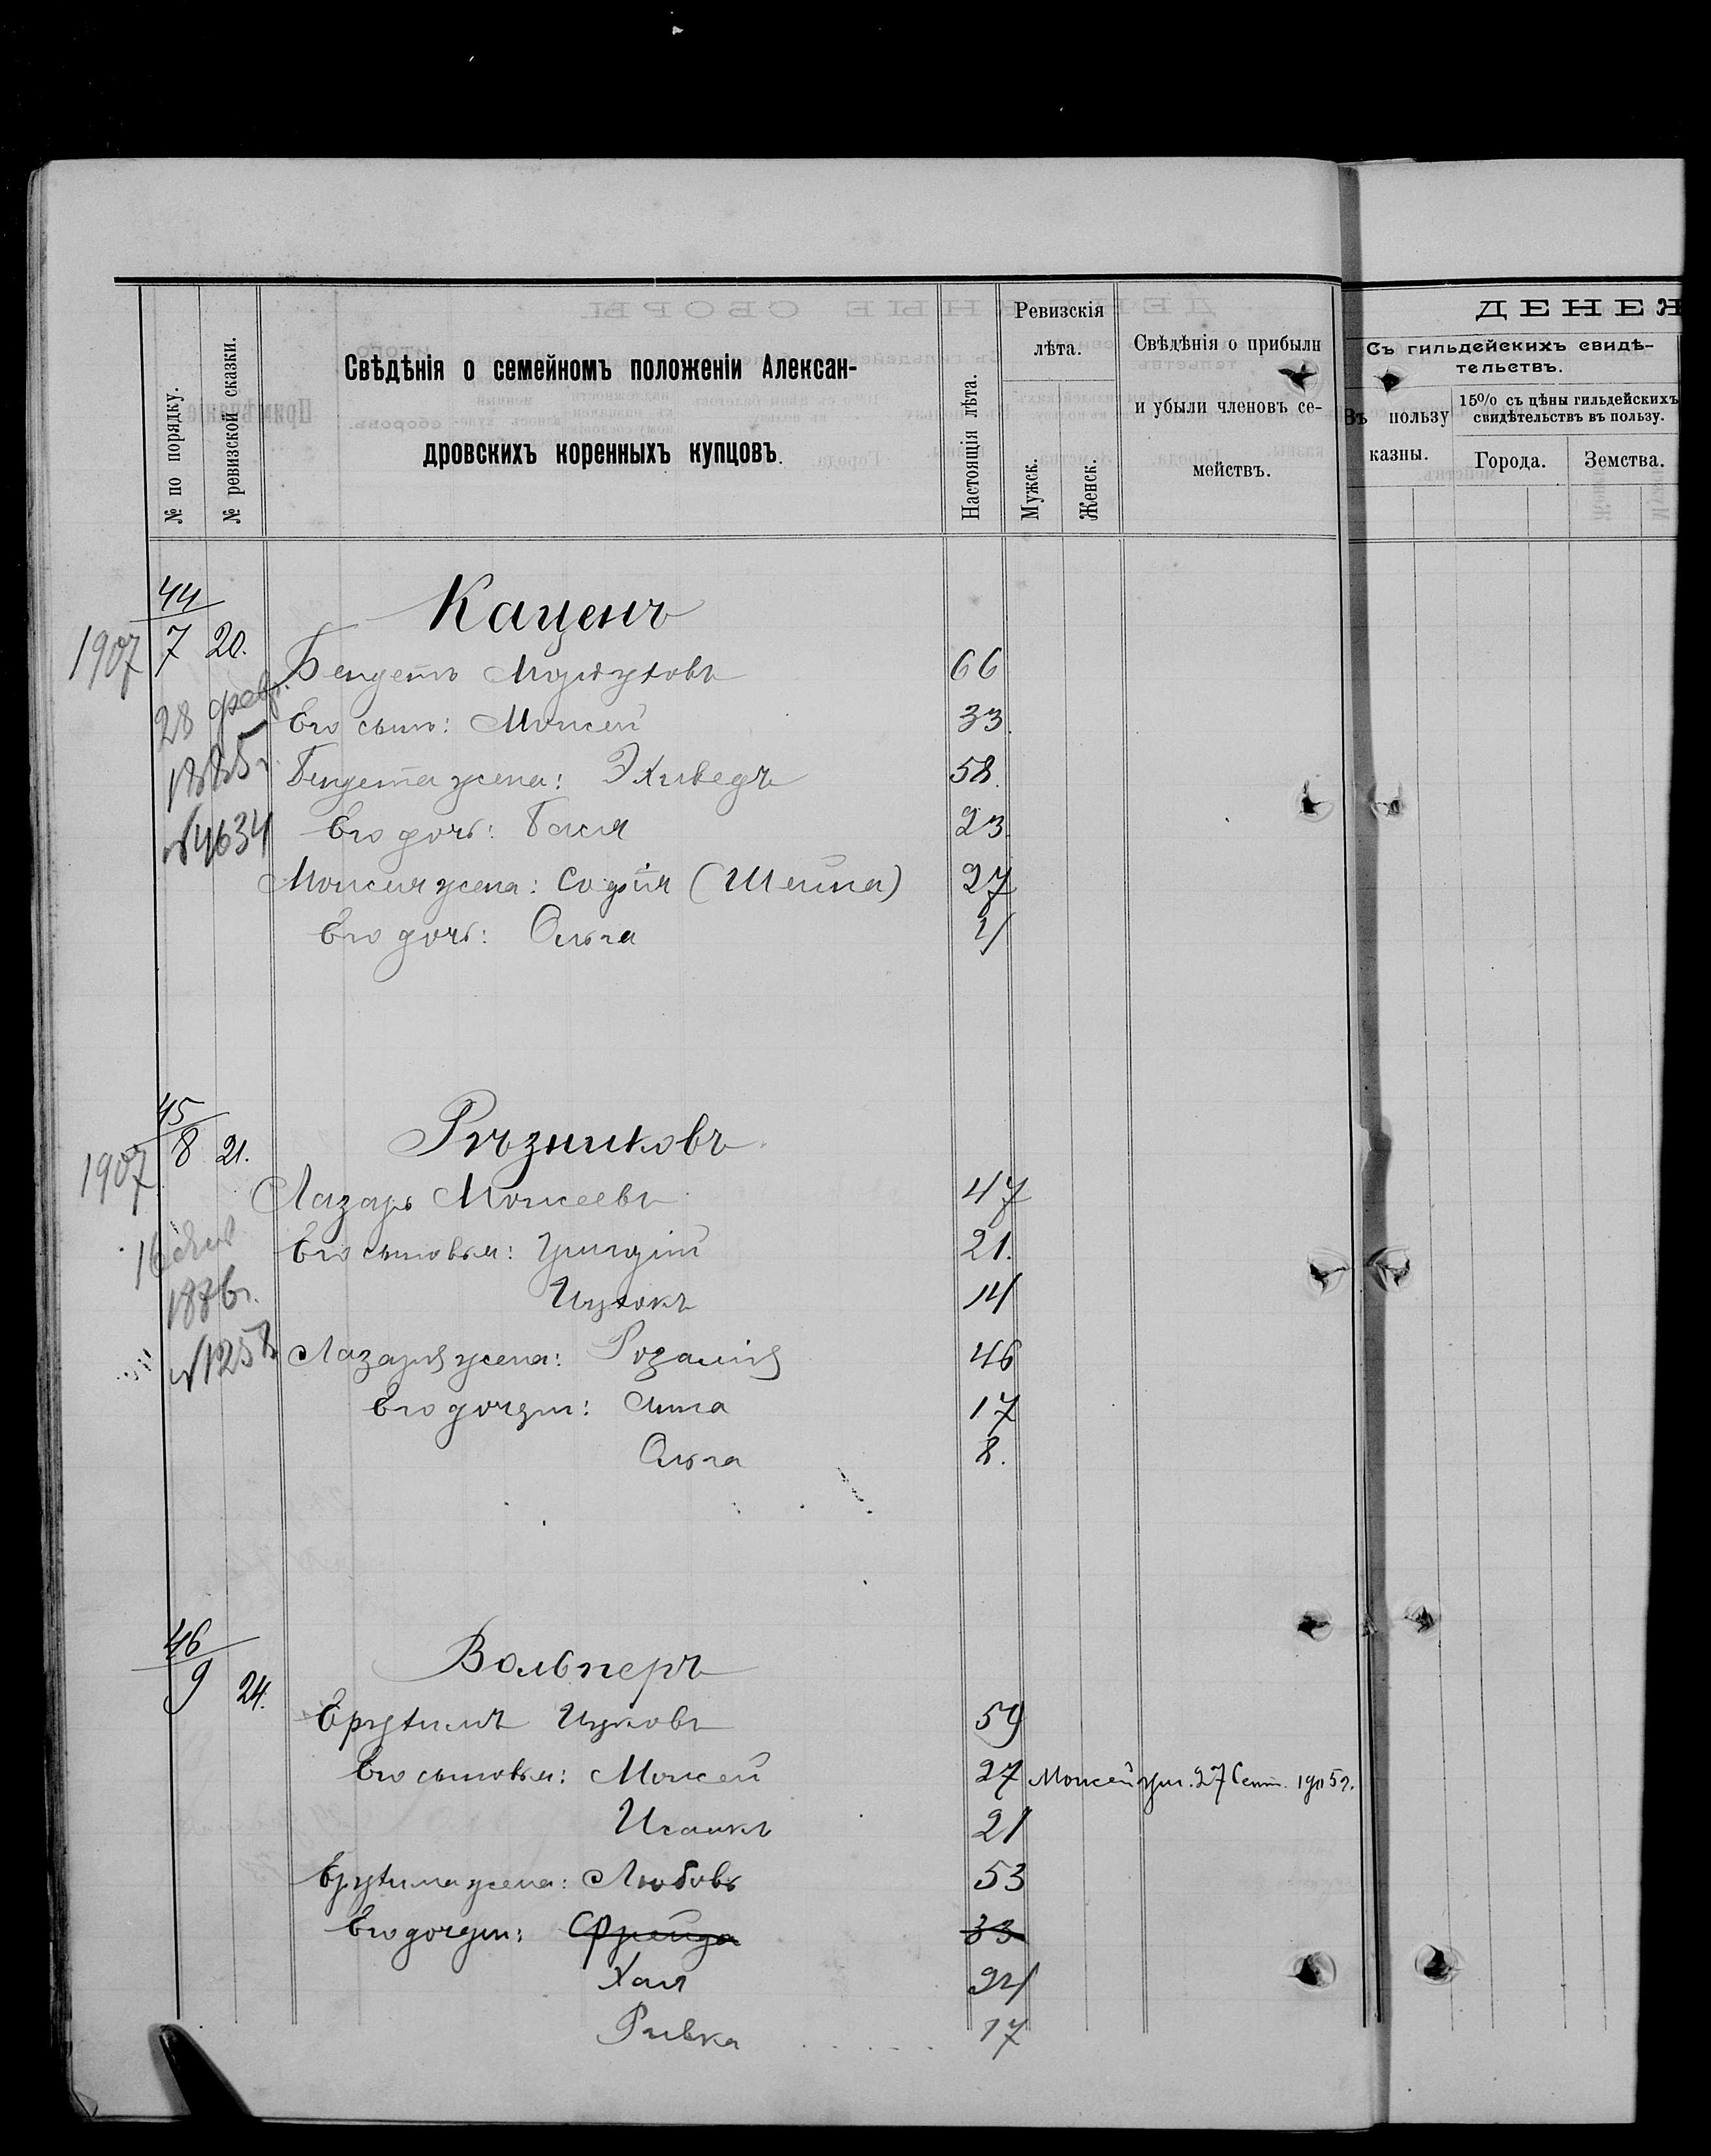 № по порядку.
№ ревизской сказки.
Свѣдѣнія о семейномъ положеніи Алексан-
дровскихъ коренныхъ купцовъ.
Настоящія лѣта.
Ревизскія
лѣта.
Мужск.
Женск.
Свѣдѣнія о прибыли
и убыли членовъ се-
мействъ.
ДЕНЕЖ
Съ гильдейскихъ свидѣ-
тельствъ.
Въ пользу
казны.
15% съ цѣны гильдейскихъ
свидѣтельствъ въ пользу.
Города.
Земства.
44
Каценъ
1907 7 20.
Бендетъ 66
28 февр.
Его сынъ: Моисей 33.
1885 г
Бендета жена: Эхиведъ 58.
№ 4634
Его дочь: Бася 23.
Моисея жена: Софія (Шейна) 27
Его дочь: Ольга
45
Рѣзниковъ
1907 8 21.
Лазарь Моисеевъ 47
16
Его сыновья: Григорій 21.
1876 г.
Ицхокъ 14
№ 1258
Лазаря жена: Розалія 46
Его дочери: Анна 17
Ольга 8.
46
Вольперъ
9 24.
Ерухимъ Ицковъ 59
Его сыновья: Моисей 27 Моисей ум. 27 Сент. 1905 г.
Исаакъ 21
Ерухима жена: Любовь 53
Его дочери: Фрейда 33
Хая 24
Ривка 17